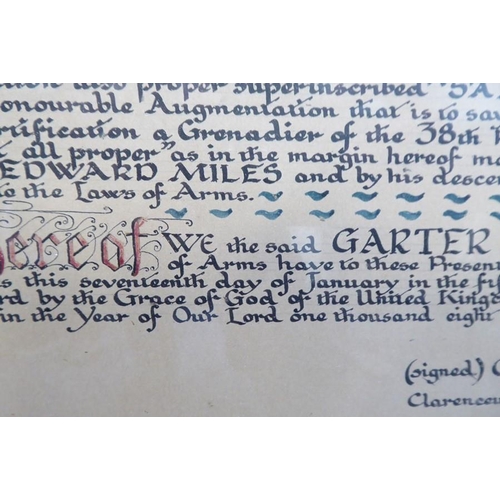 also proper superinscribed "SA
onourable Augmentation that is to say
rtification a Grenadier of the 38th
all proper" as in the margin hereof m
EDWARD MILES and by his descen
to the Laws of Arms.
hereof WE the said GARTER
of Arms have to these Present
s this seventeenth day of January in the fif
rd by the Grace of God of the United Kingd
in the Year of Our Lord one thousand eight
(signed) C
Clarenceu